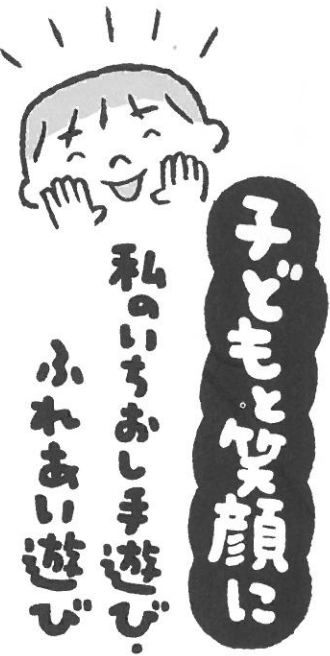 子どもと笑顔に
私のいちおし手遊び・
ふれあい遊び